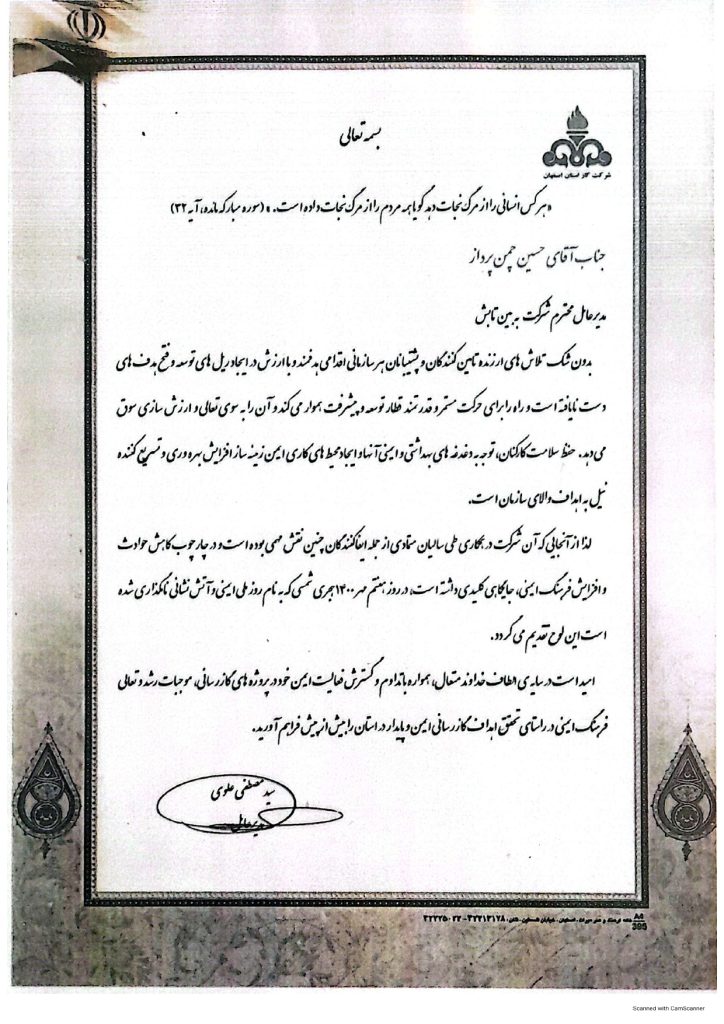 بسمه تعالی
شرکت گاز استان اصفهان
«هر کس انسانی را از مرگ نجات دهد گویا همه مردم را از مرگ نجات داده است.» (سوره مبارکه مائده، آیه ۳۲)
جناب آقای حسین چمن پرداز
مدیرعامل محترم شرکت بهین تابش
بدون شک تلاش های ارزنده تامین کنندگان و پشتیبانان هر سازمانی اقدامی هدفمند و با ارزش در ایجاد ریل های توسعه و فتح هدف های
دست نایافته است و راه را برای حرکت مستمر و قدرتمند قطار توسعه و پیشرفت هموار می کند و آن را به سوی تعالی و ارزش سازی سوق
می دهد. حفظ سلامت کارکنان، توجه به دغدغه های بهداشتی و ایمنی آنها و ایجاد محیط های کاری ایمن زمینه ساز افزایش بهره وری و تسریع کننده
نیل به اهداف والای سازمان است.
لذا از آنجایی که آن شرکت در همکاری طی سالیان متمادی از جمله ایفاکنندگان چنین نقش مهمی بوده است و در چارچوب کاهش حوادث
و افزایش فرهنگ ایمنی، جایگاهی کلیدی داشته است، در روز هفتم مهر ۱۴۰۰ هجری شمسی که به نام روز ملی ایمنی و آتش نشانی نامگذاری شده
است این لوح تقدیم می گردد.
امید است در سایه ی الطاف خداوند متعال، همواره با تداوم و گسترش فعالیت ایمن خود در پروژه های گازرسانی، موجبات رشد و تعالی
فرهنگ ایمنی در راستای تحقق اهداف گازرسانی ایمن و پایدار در استان را بیش از پیش فراهم آورید.
سید مصطفی علوی
مدیرعامل
۳۲۲۲۵۰۲۲-۳۲۲۱۳۱۲۸
A5
395
Scanned with CamScanner